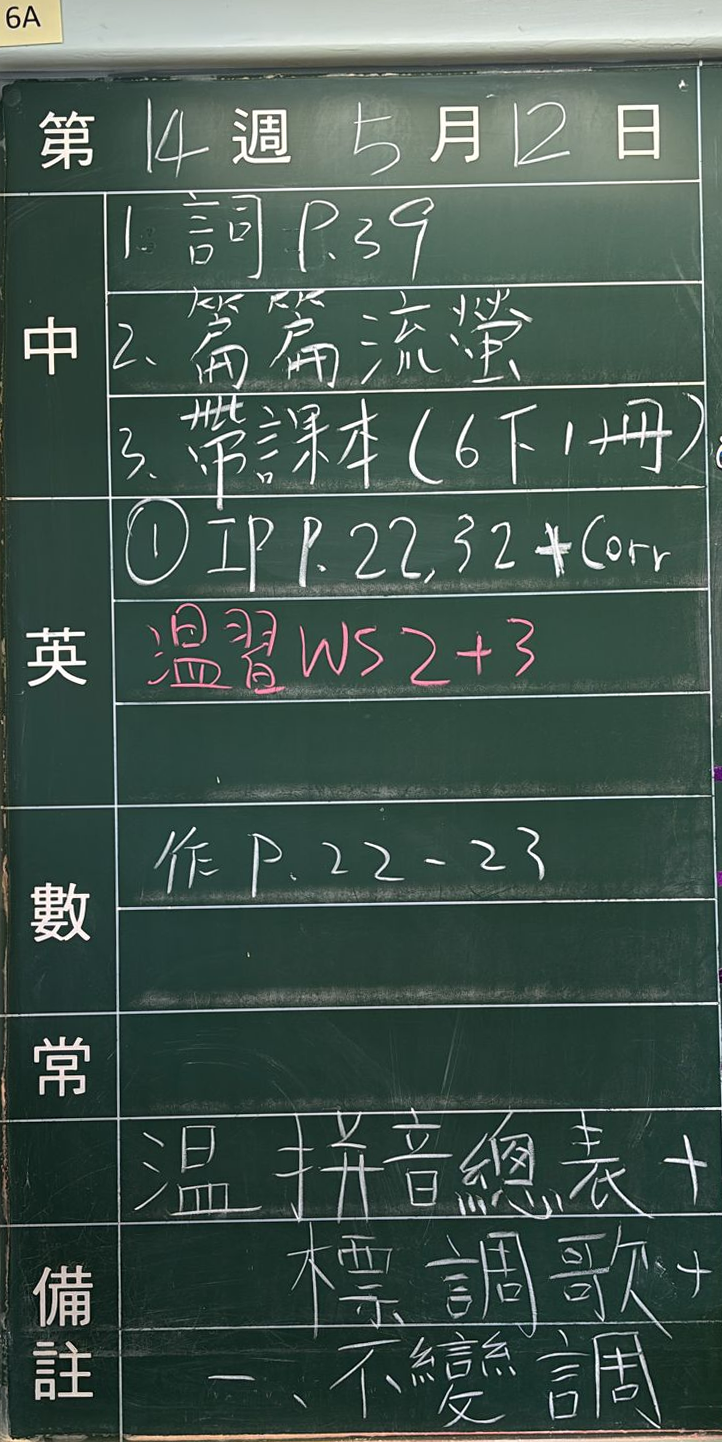 6A
第 14 週 5 月 12 日
中
1. 詞 P.39
2. 篇篇流螢
3. 帶課本(6下1冊)
英
① IP P.22,32 + Corr
温習 WS 2+3
數
作 P.22-23
常
温 拼音總表 +
備註
標調歌 +
一、不變調